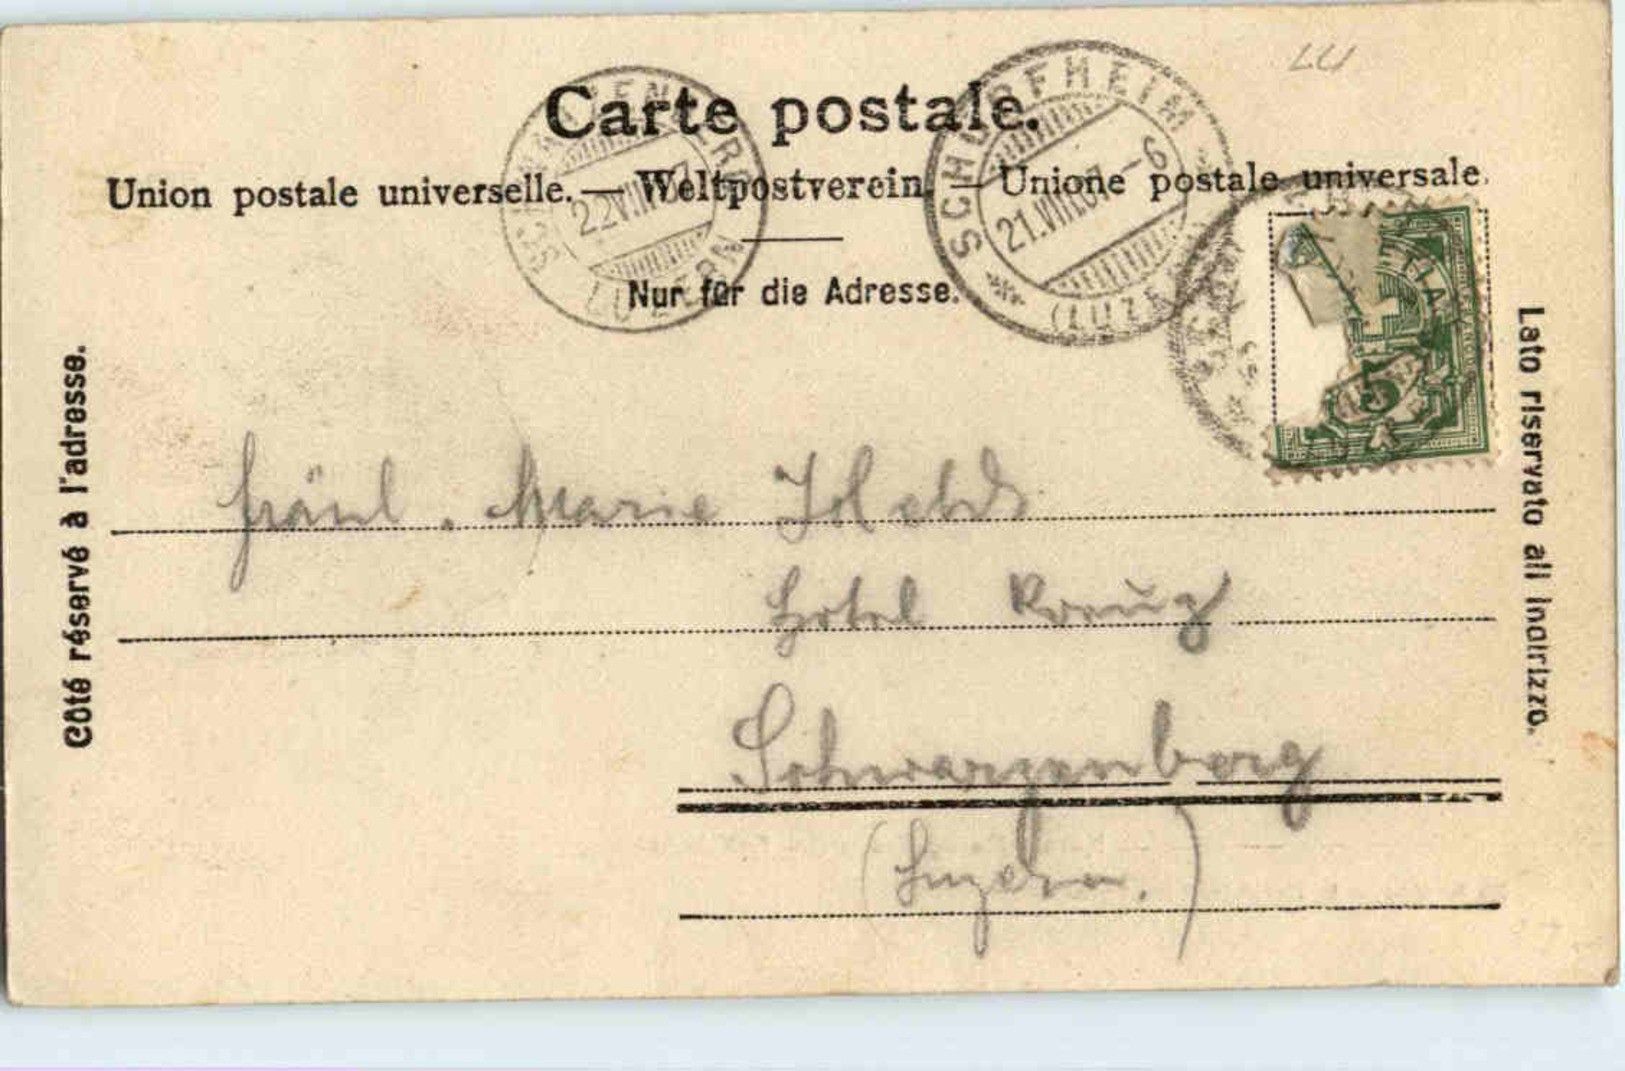 LU
Carte postale.
Union postale universelle. — Weltpostverein. — Unione postale universale.
Nur für die Adresse.
SCHWARZENBERG
LUZERN
SCHÜPFHEIM
21.VIII.07.-6
(LUZERN)
5
Côté réservé à l'adresse.
Lato riservato all indirizzo.
Fräul. Marie
Hotel Kreuz
Schwarzenberg
(Luzern.)